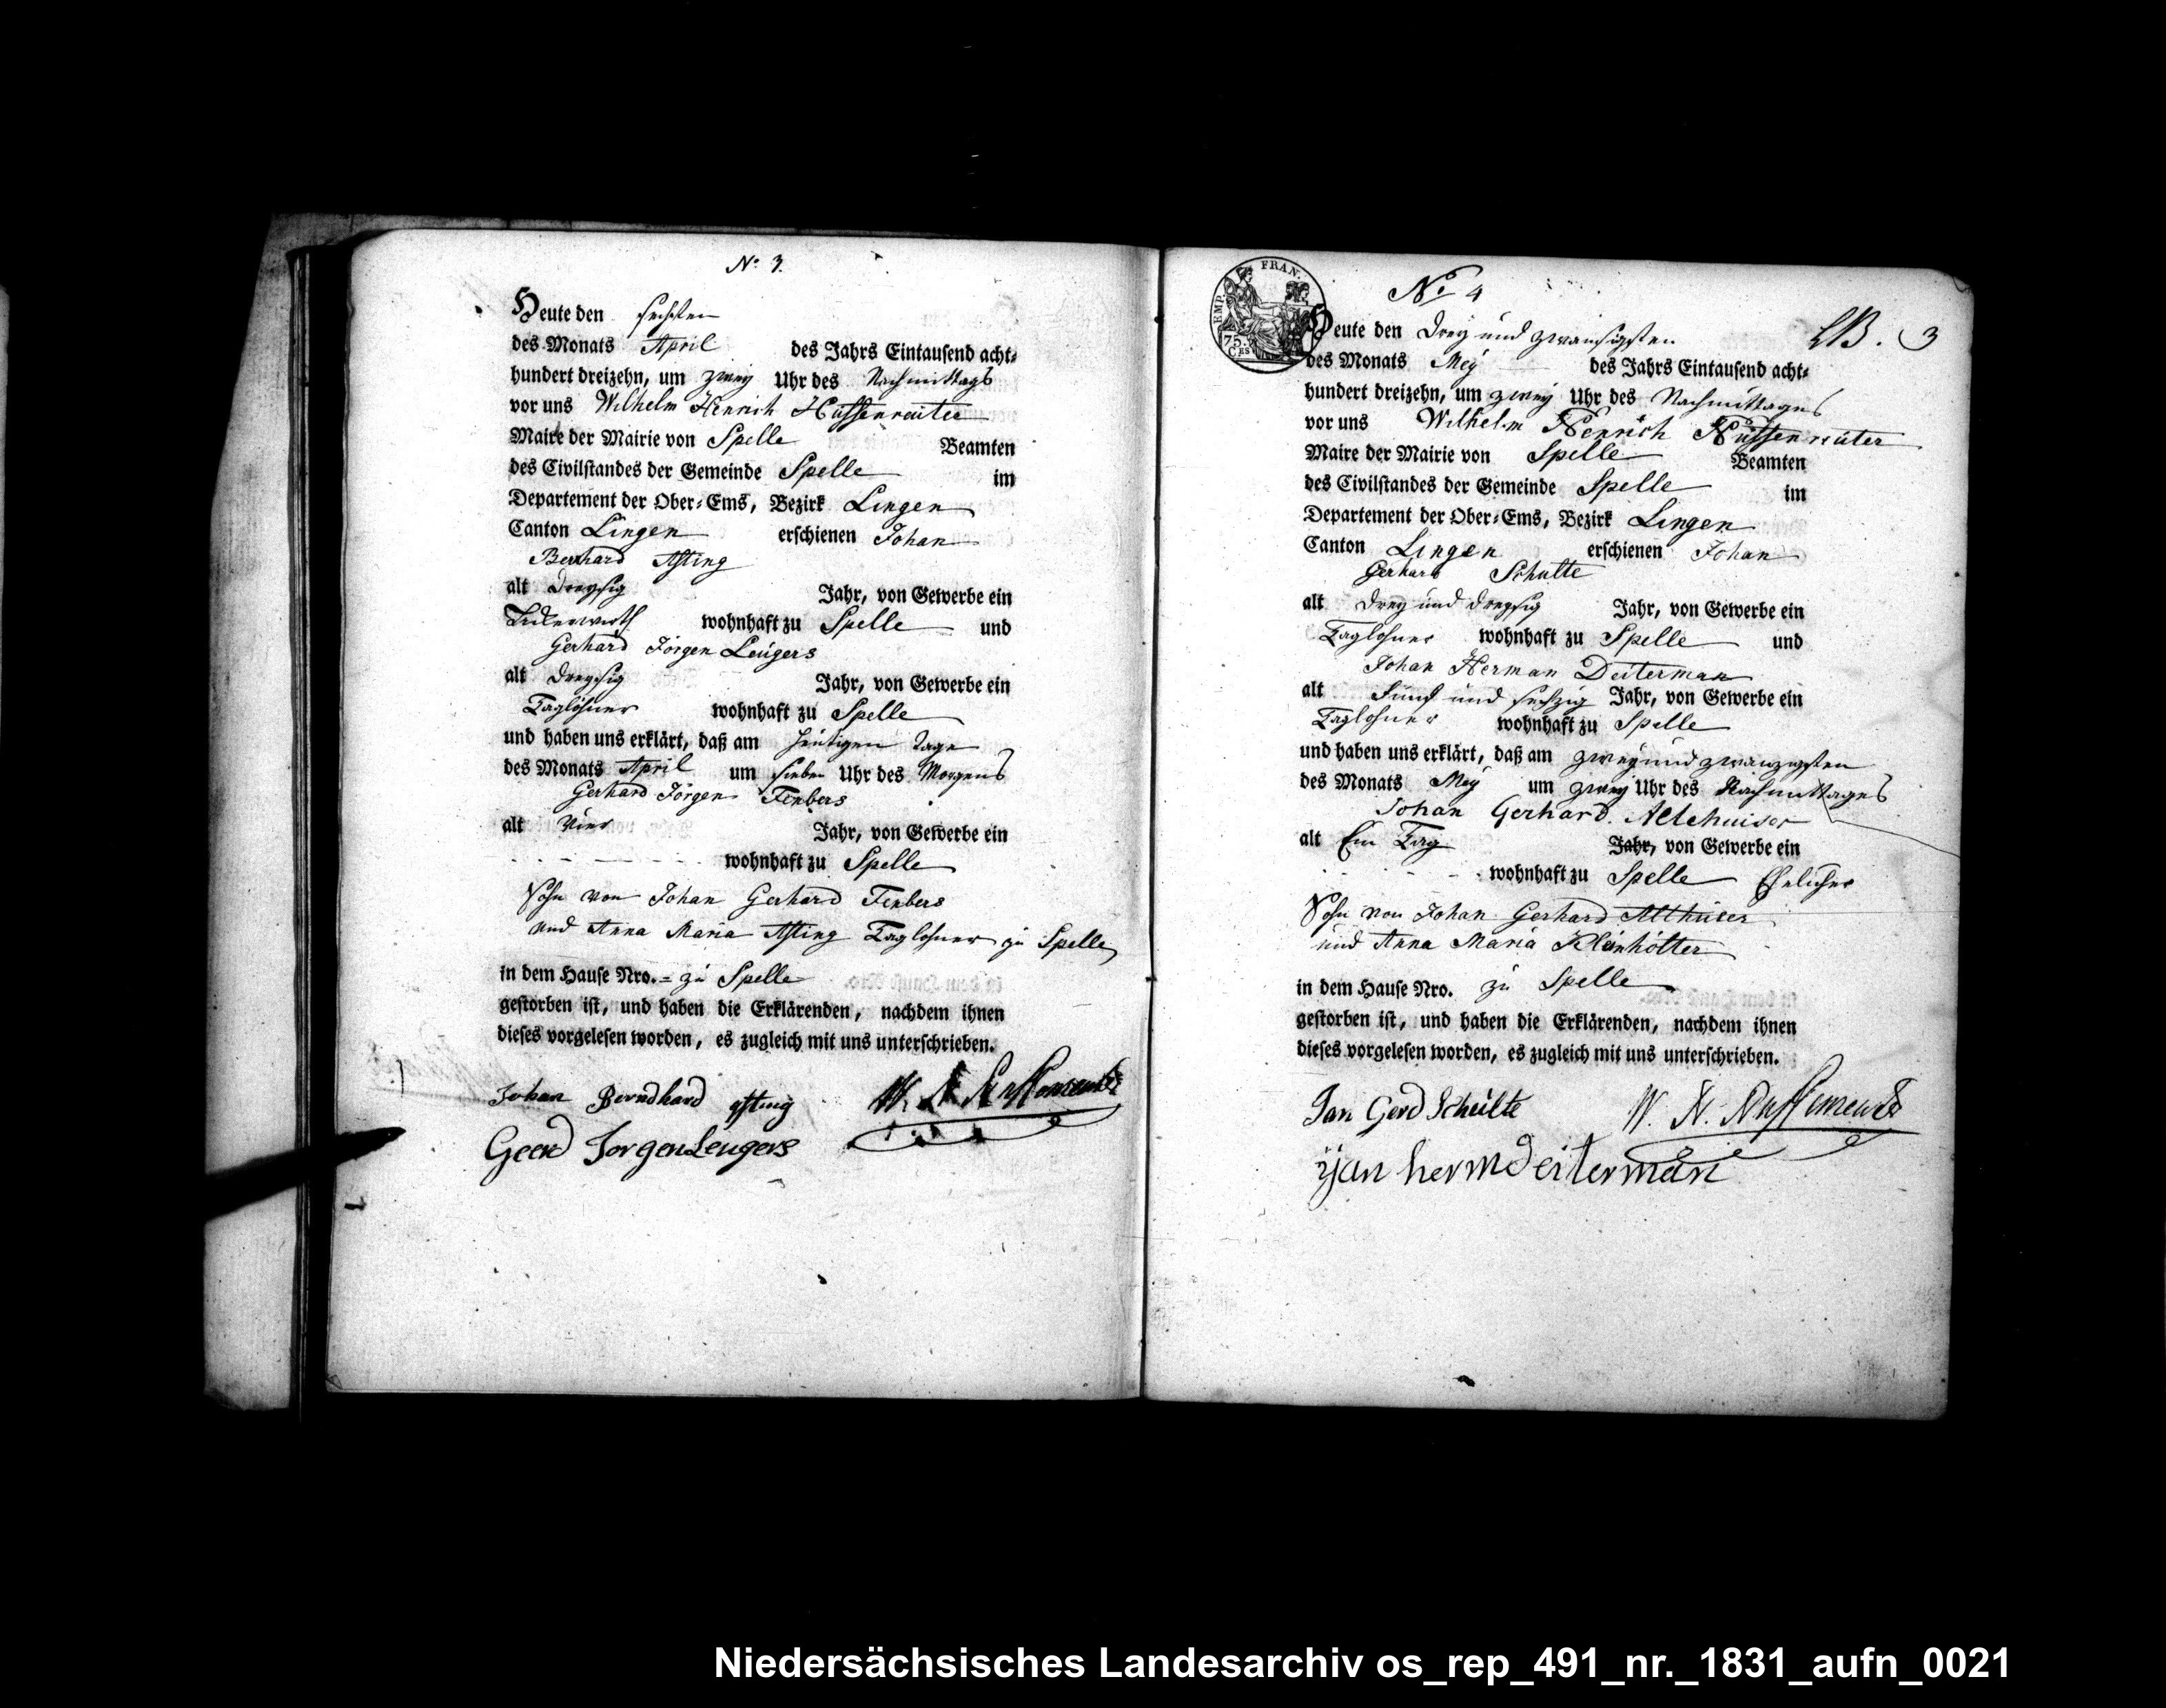 No 3.
Heute den sechsten
des Monats April des Jahrs Eintausend acht-
hundert dreizehn, um zwey Uhr des Nachmittags
vor uns Wilhelm Henrich Hüssenreüter
Maire der Mairie von Spelle Beamten
des Civilstandes der Gemeinde Spelle im
Departement der Ober-Ems, Bezirk Lingen
Canton Lingen erschienen Johan
Bernhard Asting
alt dreysig Jahr, von Gewerbe ein
wohnhaft zu Spelle und
Gerhard Jörgen Leügers
alt dreysig Jahr, von Gewerbe ein
Taglöhner wohnhaft zu Spelle
und haben uns erklärt, daß am heutigen Tage
des Monats April um sieben Uhr des Morgens
Gerhard Jörgen Fenbers
alt vier Jahr, von Gewerbe ein
wohnhaft zu Spelle
Sohn von Johan Gerhard Fenbers
und Anna Maria Asting Taglohner zu Spelle
in dem Hause Nro. = zu Spelle
gestorben ist, und haben die Erklärenden, nachdem ihnen
dieses vorgelesen worden, es zugleich mit uns unterschrieben.
Johan Berndhard asting
Geerd Jorgen Leugers
FRAN.
EMP.
75.
CES
No 4
3
Heute den Drey und zwansigsten
des Monats Mey des Jahrs Eintausend acht-
hundert dreizehn, um zwey Uhr des Nachmittages
vor uns Wilhelm Henrich Hüssenreüter
Maire der Mairie von Spelle Beamten
des Civilstandes der Gemeinde Spelle im
Departement der Ober-Ems, Bezirk Lingen
Canton Lingen erschienen Johan
Gerhard Schulte
alt drey und dreysig Jahr, von Gewerbe ein
Taglohner wohnhaft zu Spelle und
Johan Herman Deiterman
alt Fünf und sechzig Jahr, von Gewerbe ein
Taglohner wohnhaft zu Spelle
und haben uns erklärt, daß am zwey und zwanzigsten
des Monats Mey um zwey Uhr des Nachmittages
Johan Gerhard
alt Ein Tag Jahr, von Gewerbe ein
wohnhaft zu Spelle Ehelicher
Sohn von Johan Gerhard Althüser
und Anna Maria Kleinhölter
in dem Hause Nro. zu Spelle
gestorben ist, und haben die Erklärenden, nachdem ihnen
dieses vorgelesen worden, es zugleich mit uns unterschrieben.
Jan Gerd Schulte
ijan herm deiterman
Niedersächsisches Landesarchiv os_rep_491_nr._1831_aufn_0021